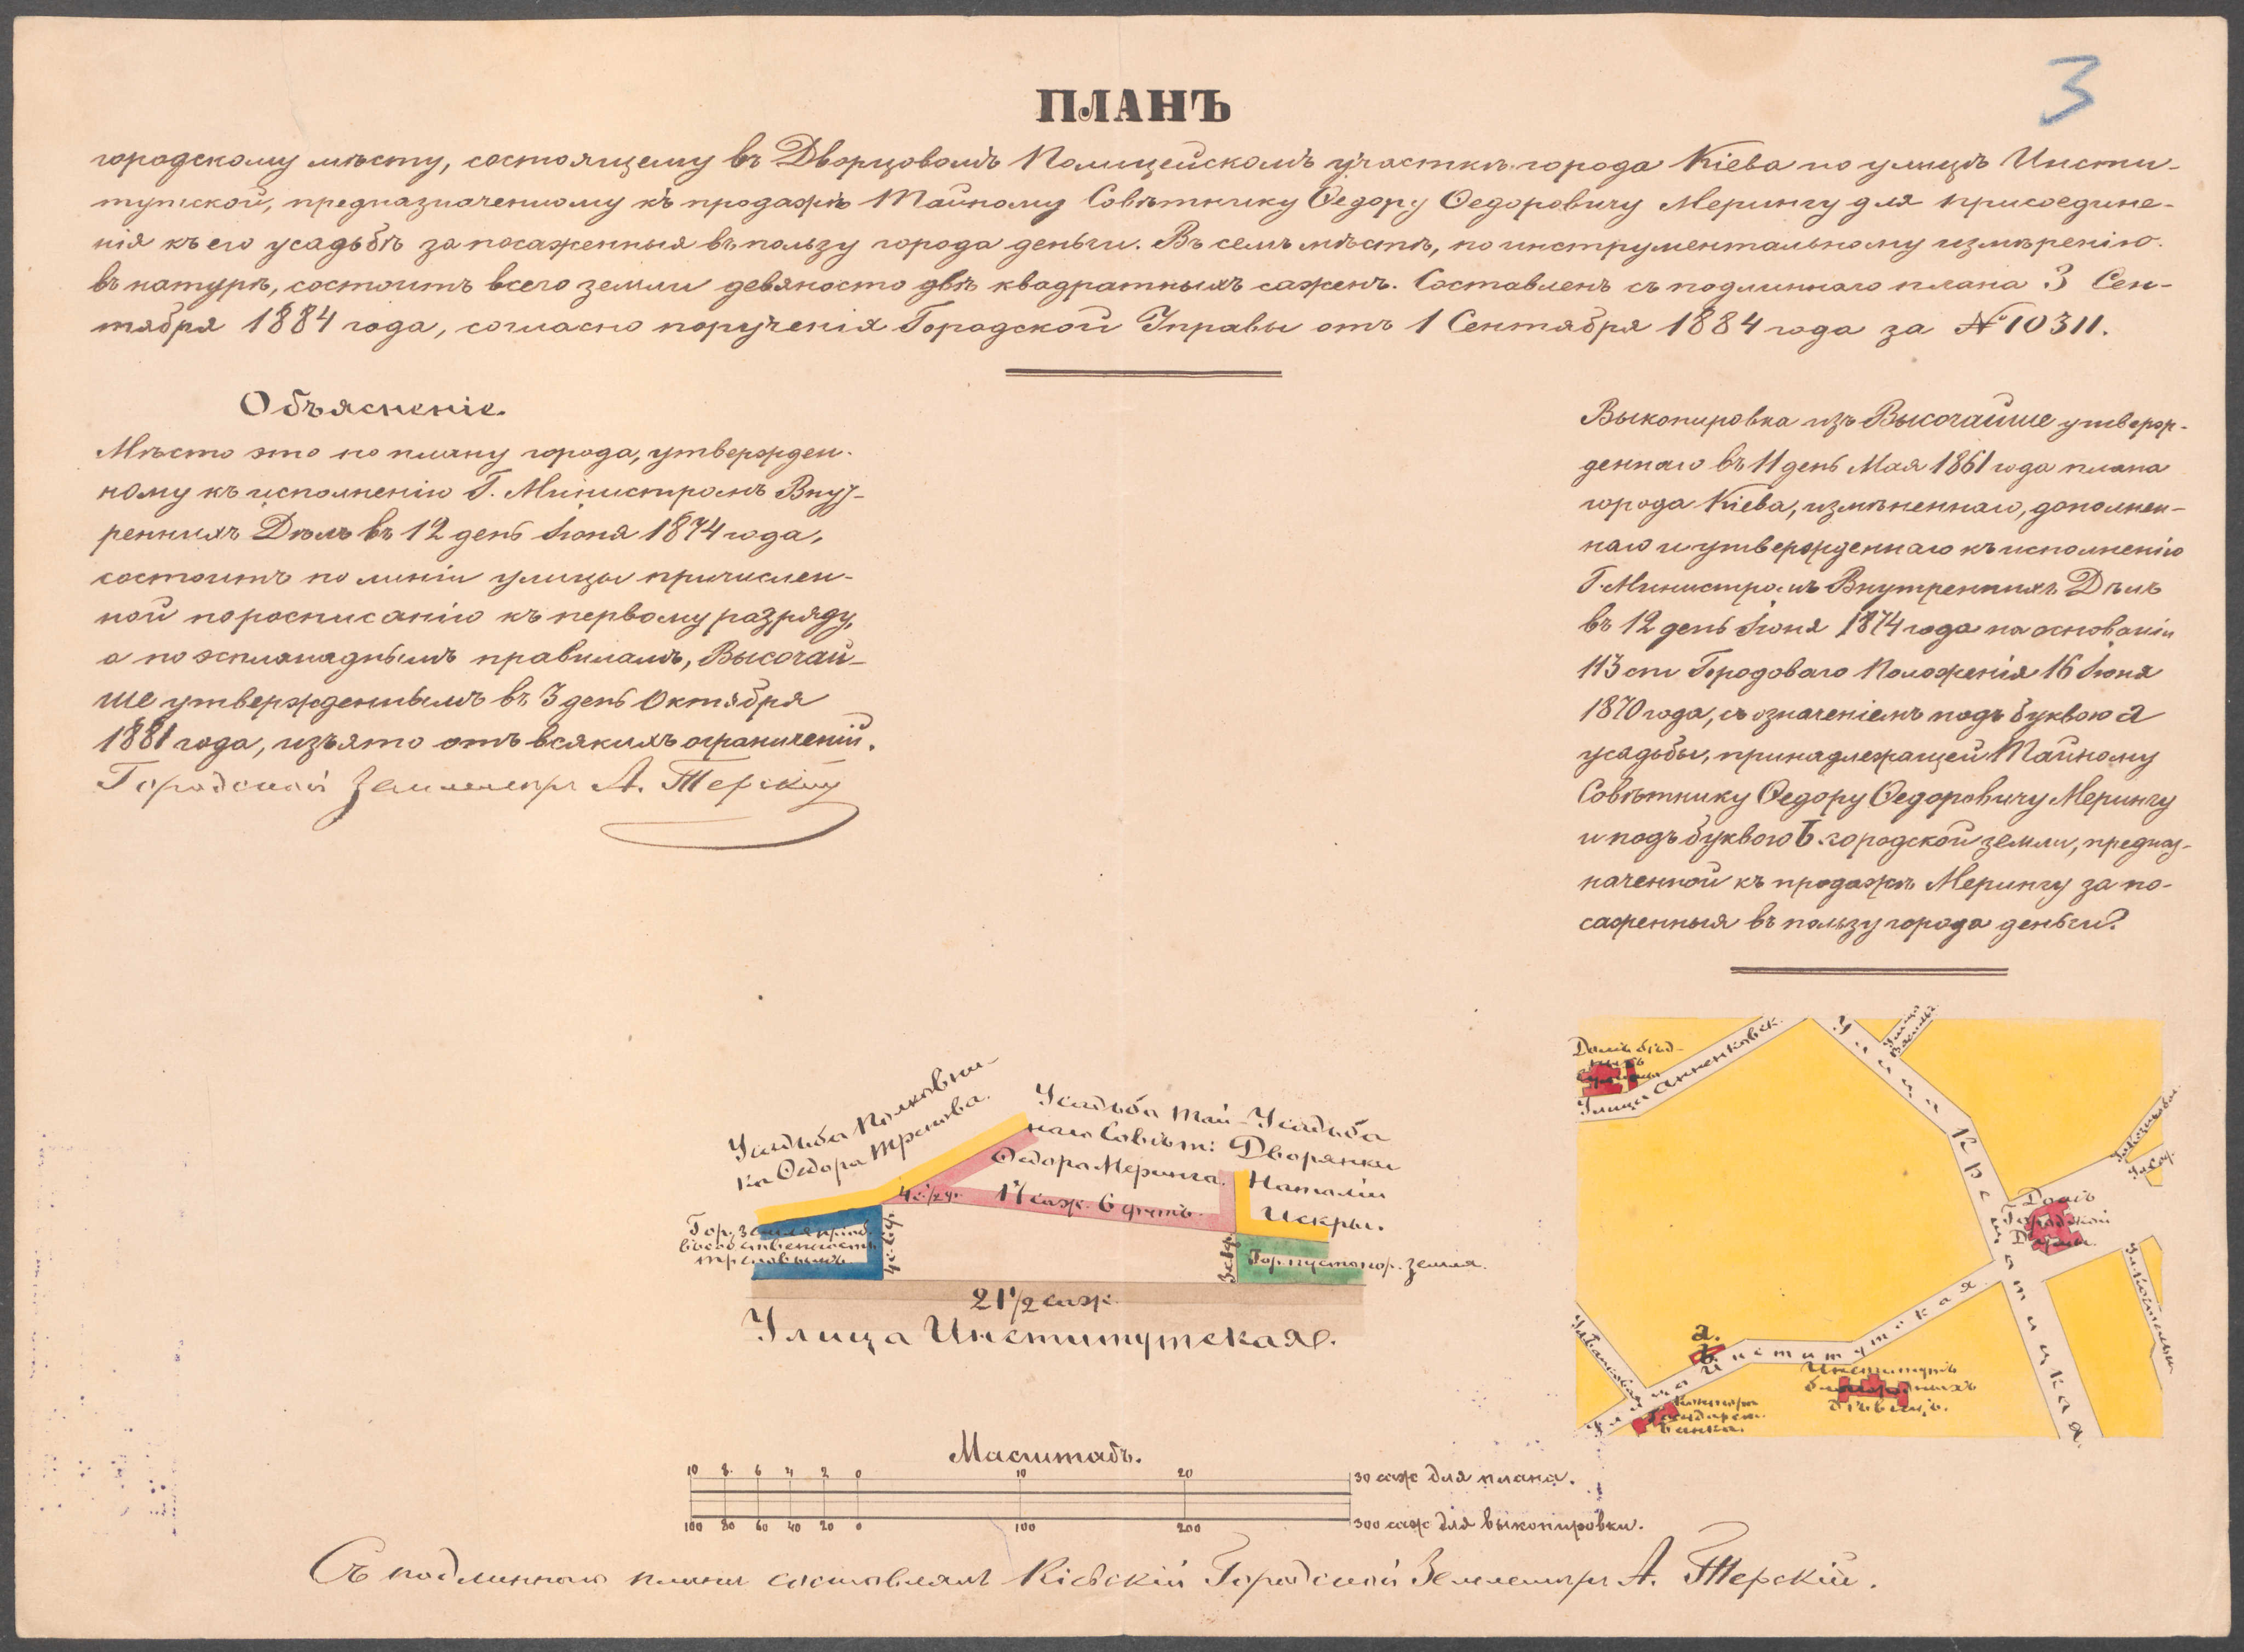 3
ПЛАНЪ
городскому мѣсту, состоящему въ Дворцовомъ Полицейскомъ участкѣ города Кіева по улицѣ Инсти-
тутской, предназначенному къ продажѣ Тайному Совѣтнику Ѳедору Ѳедоровичу Мерингу для присоедине-
нія къ его усадьбѣ за посаженныя въ пользу города деньги. Въ семъ мѣстѣ, по инструментальному измѣренію
въ натурѣ, состоитъ всего земли девяносто двѣ квадратныхъ сажень. Составленъ съ подлиннаго плана 3 Сен-
тября 1884 года, согласно порученія Городской Управы отъ 1 Сентября 1884 года за № 10311.
Объясненіе.
Мѣсто это по плану города, утвержден-
ному къ исполненію Г. Министромъ Внут-
реннихъ Дѣлъ въ 12 день Іюня 1874 года,
состоитъ по линіи улицы причислен-
ной по росписанію къ первому разряду,
а по эспланаднымъ правиламъ, Высочай-
ше утвержденнымъ въ 3 день Октября
1881 года, изъято отъ всякихъ ограниченій.
Городской Землемѣръ А. Терскій
Выкопировка изъ Высочайше утверж-
деннаго въ 11 день Мая 1861 года плана
города Кіева, измѣненнаго, дополнен-
наго и утвержденнаго къ исполненію
Г. Министромъ Внутреннихъ Дѣлъ
въ 12 день Іюня 1874 года на основаніи
113 ст Городоваго Положенія 16 Іюня
1870 года, съ означеніемъ подъ буквою а
усадьбы, принадлежащей Тайному
Совѣтнику Ѳедору Ѳедоровичу Мерингу
и подъ буквою б городской земли, предназ-
наченной къ продажѣ Мерингу за по-
саженныя въ пользу города деньги.
Усадьба Полковни-
ка Ѳедора Трепова.
Усадьба Тай-
наго Совѣт:
Ѳедора Меринга.
Усадьба
Дворянки
Наталіи
Искры.
4 с. 1/2 ф.
17 саж. 6 футъ.
Гор. земля пріоб.
въ собственность
Треповымъ
3 с. 1 ф.
Гор. пустопор. земля.
21 1/2 саж.
Улица Институтская.
Домъ бѣд-
ныхъ
Улица Анненковск.
Улица Крещатицкая
Домъ
Городской
Думы.
Ул. Костельная
Ул. Банковая
а.
б.
Улица Институтская
Институтъ
благородныхъ
дѣвицъ.
Контора
Государст.
банка.
Масштабъ.
10 8 6 4 2 0 10 20 30 саж для плана.
100 80 60 40 20 0 100 200 300 саж для выкопировки.
Съ подлиннаго плана составлялъ Кіевскій Городской Землемѣръ А. Терскій.